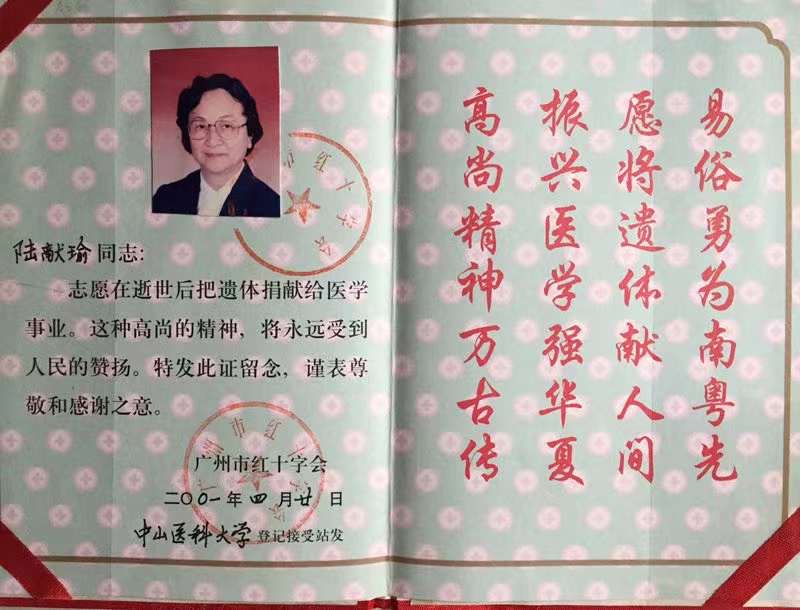 陆献瑜同志:
志愿在逝世后把遗体捐献给医学
事业。这种高尚的精神，将永远受到
人民的赞扬。特发此证留念，谨表尊
敬和感谢之意。
广州市红十字会
二〇〇一年四月廿日
中山医科大学登记接受站发
广州市红十字会
易俗勇为南粤先
愿将遗体献人间
振兴医学强华夏
高尚精神万古传